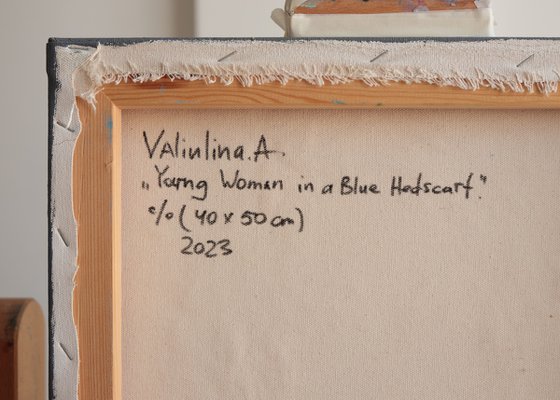 Valiulina.A.
„Young Woman in a Blue Hedscarf."
%(40 x 50 cm)
2023